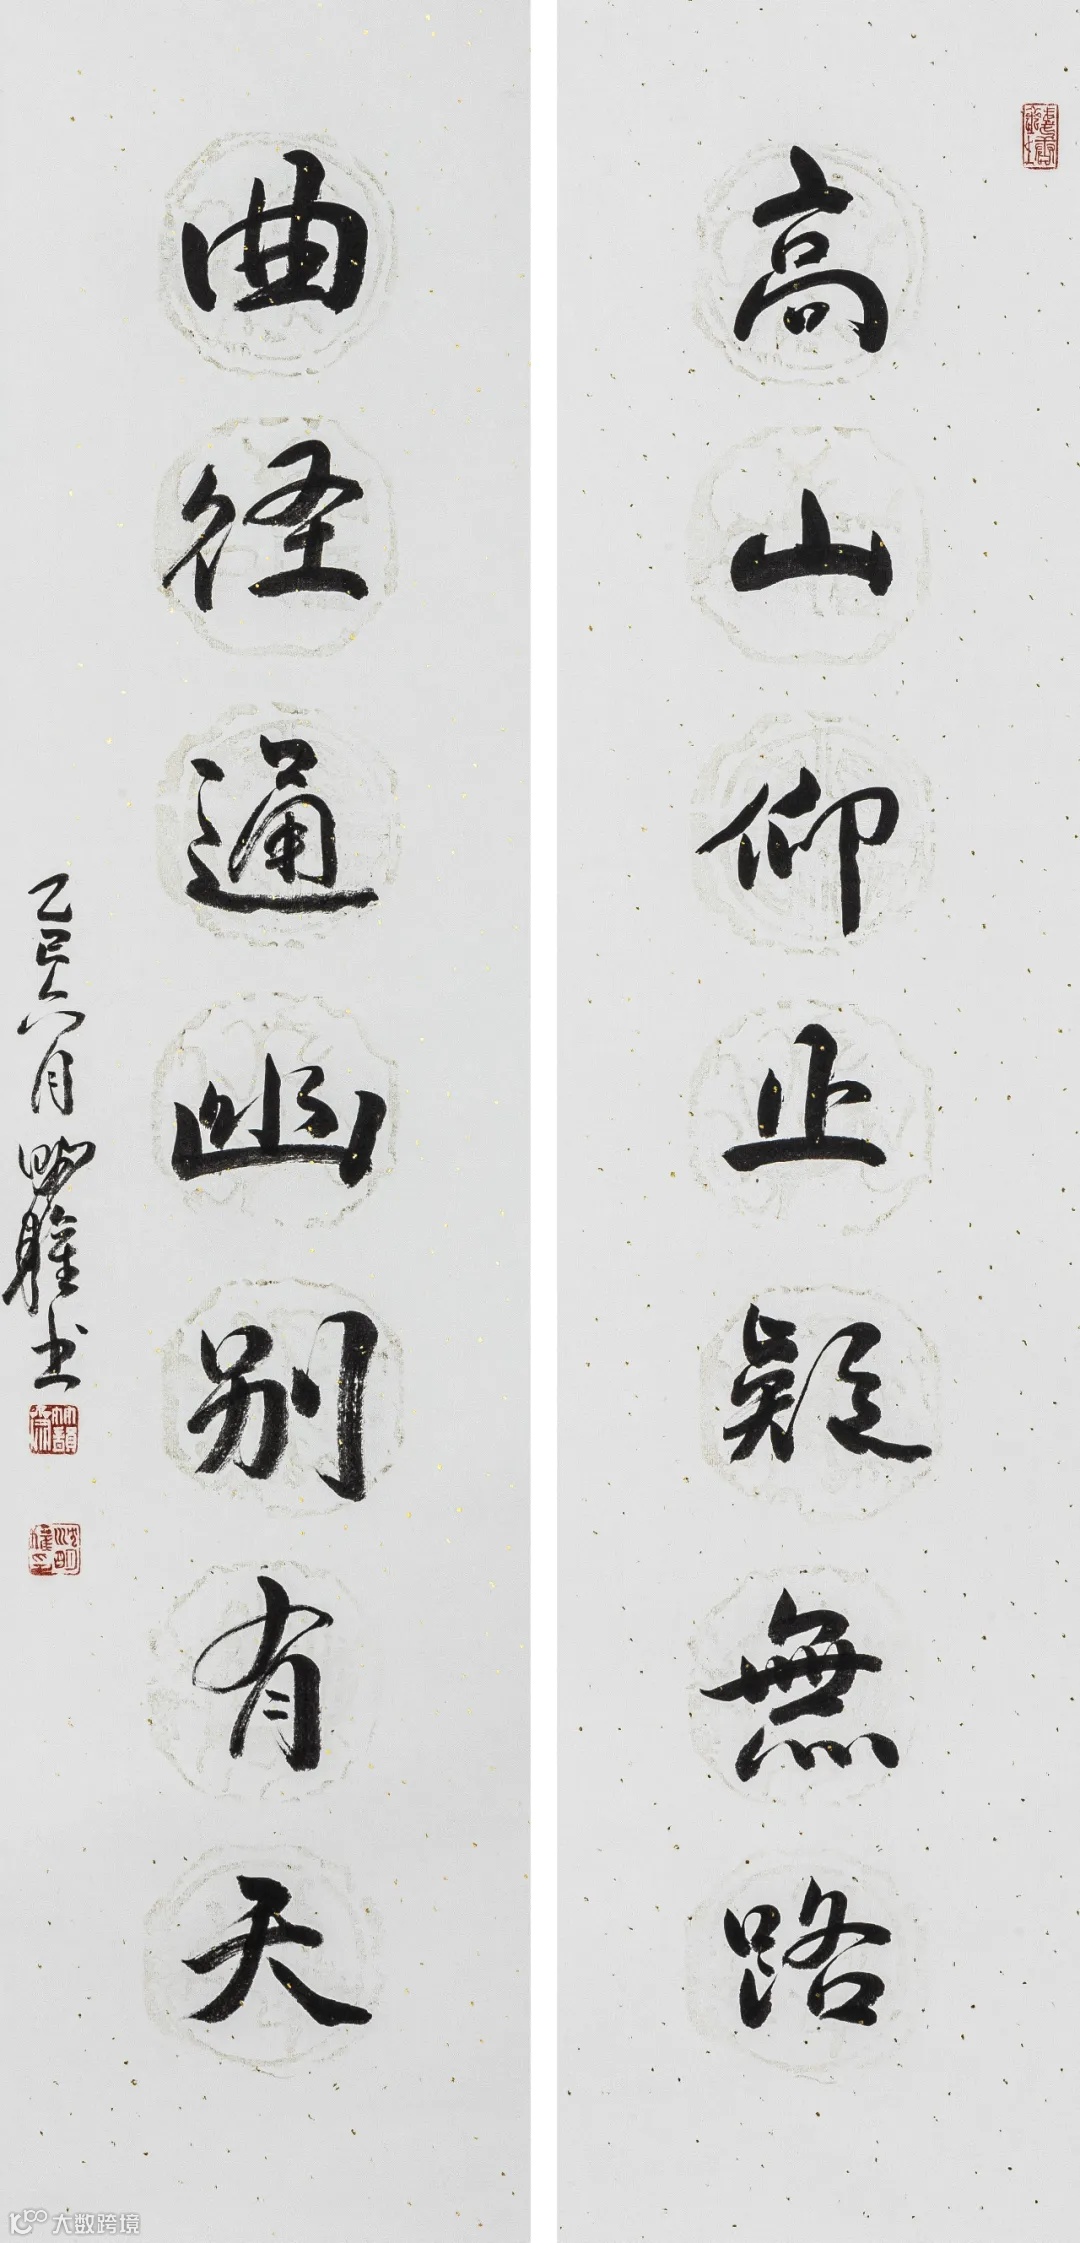 高山仰止疑無路
曲径通幽别有天
乙巳六月明臛书
大数跨境